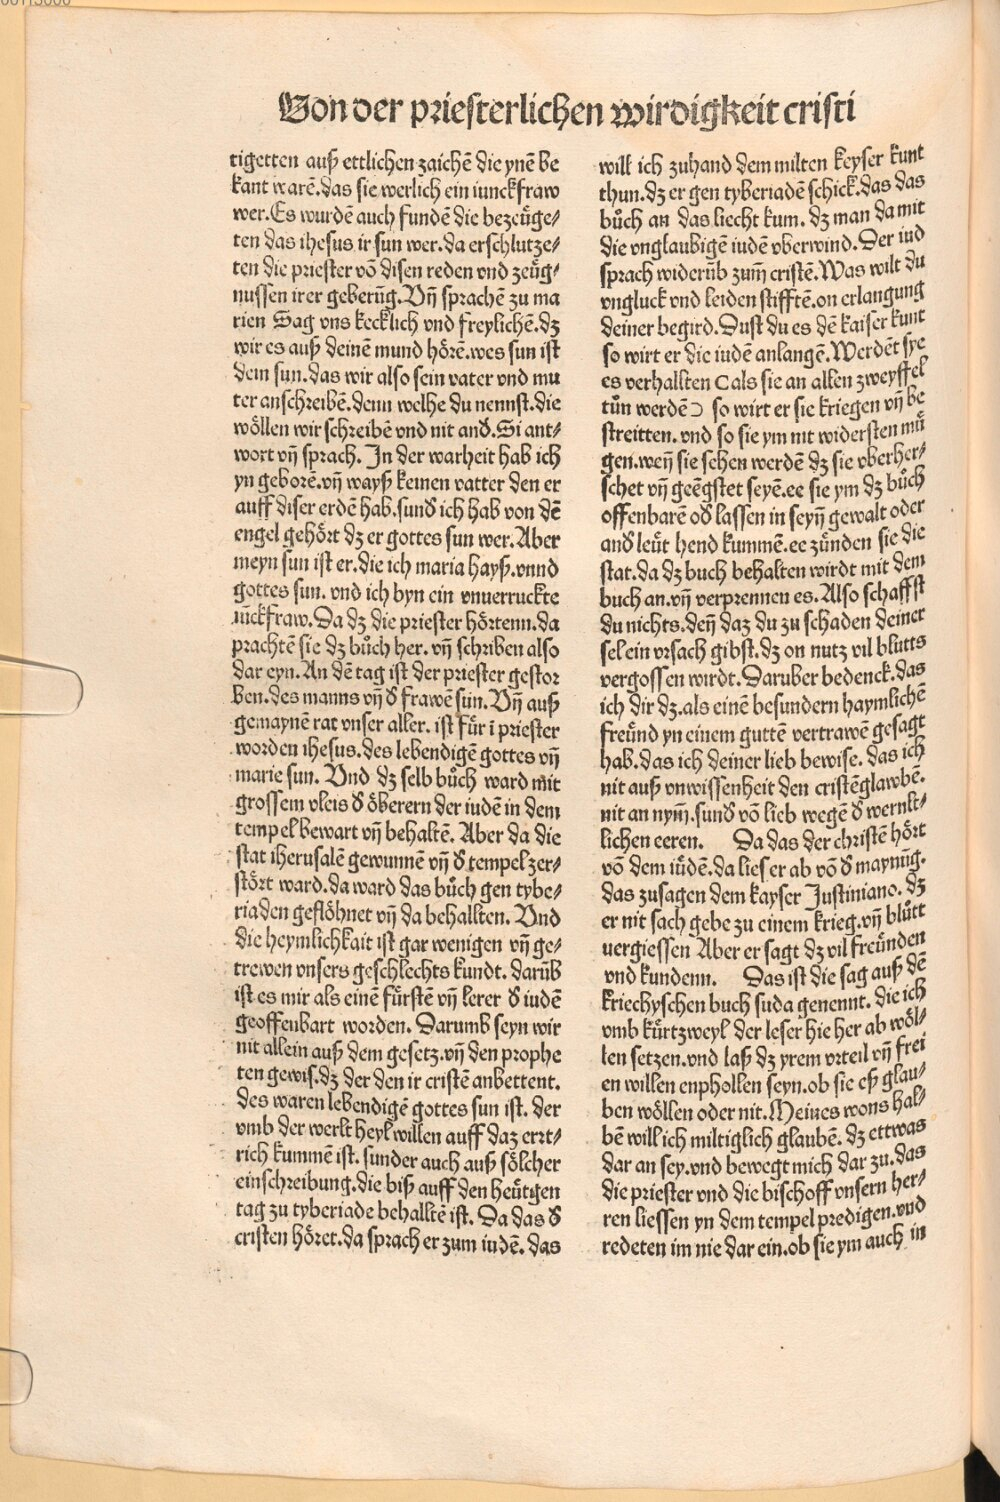 Von der priesterlichen wirdigkeit cristi
tigetten auß ettlichen zaichē die ynē be
kant warē.das sie werlich ein iunckfraw
wer.Es wurdē auch fundē die bezeüge⸗
ten das ihesus ir sun wer.da erschlutze⸗
ten die priester vō disen reden vnd zeüg⸗
nussen irer geberūg.Vñ sprachē zu ma
rien Sag vns kecklich vnd freylichē.dz
wir es auß deinē mund hörē.wes sun ist
dein sun.das wir also sein vater vnd mu
ter anschreibē.denn welhe du nennst.die
wöllen wir schreibē vnd nit anď.Si ant⸗
wort vñ sprach. In der warheit hab ich
yn geborē.vñ wayß keinen vatter den er
auff diser erdē hab.sunď ich hab von dē
engel gehört dz er gottes sun wer.Aber
meyn sun ist er.die ich maria hayß.vnnd
gottes sun. vnd ich byn ein vnuerruckte
iūckfraw.Da dz die priester hörtenn.da
prachtē sie dz bůch her. vñ schriben also
dar eyn.An dē tag ist der priester gestor
ben.des manns vñ ď frawē sun. Vñ auß
gemaynē rat vnser aller. ist für ī priester
worden ihesus.des lebendigē gottes vñ
marie sun. Vnd dz selb bůch ward mit
grossem vleis ď öberern der iudē in dem
tempel bewart vñ behaltē. Aber da die
stat iherusalē gewunnē vñ ď tempel zer⸗
stört ward.da ward das bůch gen tybe⸗
riaden geflöhnet vñ da behallten. Vnd
die heymlichkait ist gar wenigen vñ ge⸗
trewen vnsers geschlechts kundt. darūb
ist es mir als einē fürstē vñ lerer ď iudē
geoffenbart worden. Darumb seyn wir
nit allein auß dem gesetz.vñ den prophe
ten gewis.dz der den ir cristē anbettent.
des waren lebendigē gottes sun ist. der
vmb der werlt heyl willen auff daz errt⸗
rich kummē ist. sunder auch auß sölcher
einschreibung.die biß auff den heütigen
tag zu tyberiade behalltē ist. Da das ď
cristen höret.da sprach er zum iudē. das
will ich zuhand dem milten keyser kunt
thun.dz er gen tyberiadē schick.das das
bůch an das liecht kum. dz man da mit
die vnglaubigē iudē vberwind.Der iud
sprach widerūb zum̄ cristē.Was wilt du
vngluck vnd leiden stifftē.on erlangung
deiner begird.Dust du es dē kaiser kunt
so wirt er die iudē anlangē.Werdēt sye
es verhallten (als sie an allen zweyffel
tůn werdē) so wirt er sie kriegen vñ be
streitten. vnd so sie ym nit widersten mü
gen.weñ sie sehen werdē dz sie vberher⸗
schet vñ geēgstet seyē.ee sie ym dz bůch
offenbarē oď lassen in seyñ gewalt oder
anď leüt hend kummē.ee zünden sie die
stat.da dz buch behalten wirdt mit dem
buch an.vñ verprennen es.Also schaffst
du nichts.deñ daz du zu schaden deiner
sel ein vrsach gibst.dz on nutz vil blutts
vergossen wirdt.Daruber bedenck.das
ich dir dz.als einē besundern haymlichē
freünd yn einem guttē vertrawē gesagt
hab.das ich deiner lieb bewise. das ich
nit auß vnwissenheit den cristēglawbē.
nit an nym̄.sunď vō lieb wegē ď wernlt⸗
lichen eeren. Da das der christē hört
vō dem iüdē.da lies er ab vō ď maynūg.
das zusagen dem kayser Justiniano. dz
er nit sach gebe zu einem krieg.vñ blůtt
uergiessen Aber er sagt dz vil freünden
vnd kundenn. Das ist die sag auß dē
kriechyschen buch suda genennt. die ich
vmb kürtzweyl der leser hie her ab wöl⸗
len setzen.vnd laß dz yrem vrteil vñ frei
en willen enphollen seyn.ob sie eß glau⸗
ben wöllen oder nit.Meines wons hal⸗
bē will ich miltiglich glaubē. dz ettwas
dar an sey.vnd bewegt mich dar zu.das
die priester vnd die bischoff vnsern her⸗
ren liessen yn dem tempel predigen.vnd
redeten im nie dar ein.ob sie ym auch in